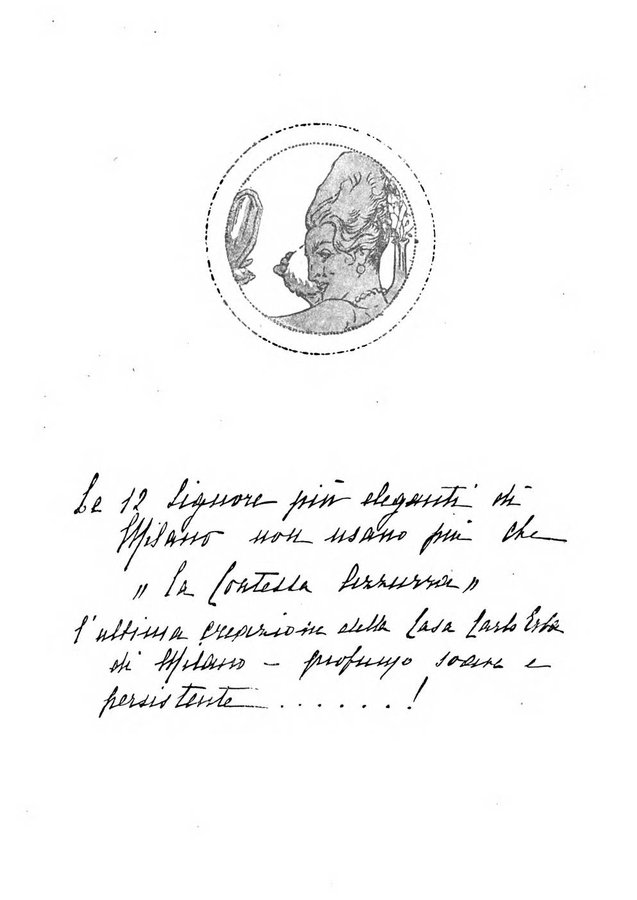 Le 12 Signore più eleganti di
Milano non usano più che
„ La Contessa Azzurra „
l'ultima creazione della Casa Carlo Erba
di Milano – profumo soave e
persistente . . . . . . . !